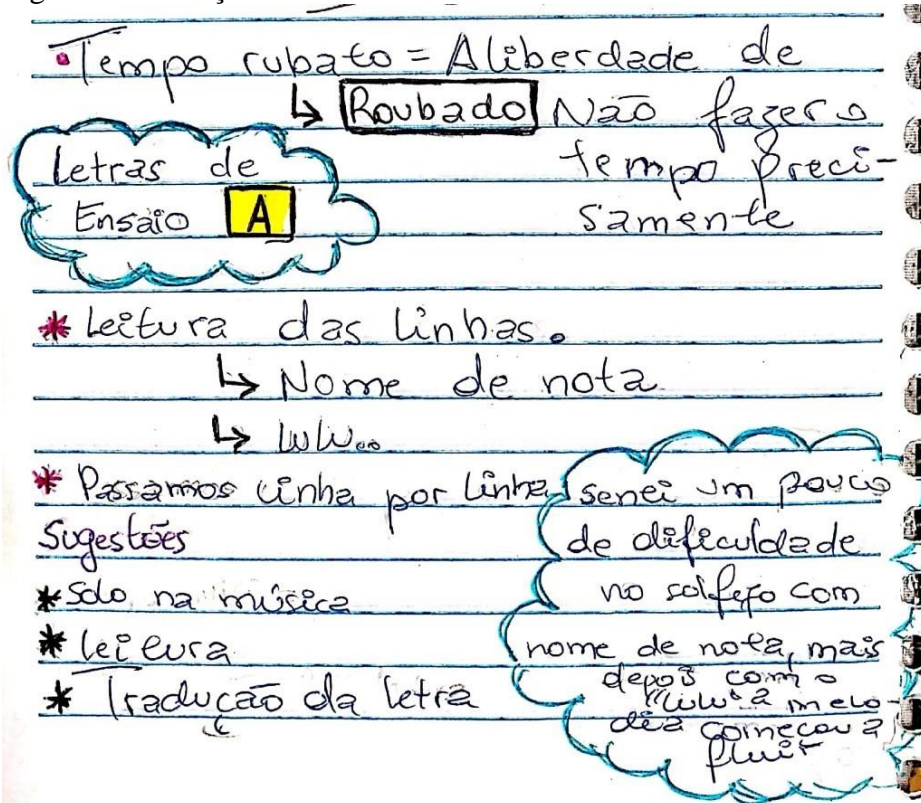 • Tempo rubato = A liberdade de
↳ Roubado Não fazer o
tempo preci-
samente
Letras de
Ensaio A
* Leitura das linhas.
↳ Nome de nota
↳ lulu..
* Passamos linha por linha
Sugestões
* Solo na música
* leitura
* Tradução da letra
senei um pouco
de dificuldade
no solfejo com
nome de nota, mais
depois com o
"lulu" a melo-
dia começou a
fluir